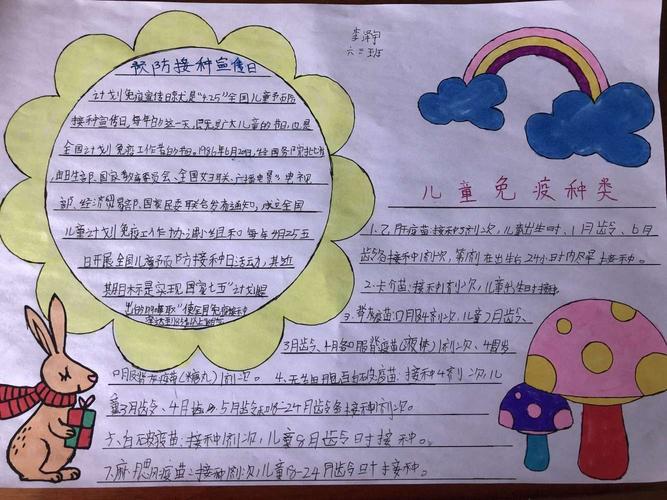 李泽宇
六三班
预防接种宣传日
计划免疫宣传日就是“4.25”全国儿童预防
接种宣传日，每年的这一天，既是广大儿童的节日，也是
全国计划免疫工作者的节日。1986年6月2日，经国务院批准
由卫生部、国家教育委员会、全国妇联、广播电影电视
部、经济贸易部、国家民委联合发布通知，成立全国
儿童计划免疫工作协调小组和每年4月25日
日开展全国儿童预防接种日活动，其近
期目标是实现国家七五“计划规
儿童免疫种类
1.乙肝疫苗:接种3剂次，儿童出生时、1月龄、6月
龄各接种1剂次，第1剂在出生后24小时内尽早接种。
2.卡介苗:接种1剂次，儿童出生时接种
儿童2月龄、
3月龄、4月各口服脊疫苗(液体)1剂次、4周岁
口服脊灰疫苗(糖丸)1剂次。4、无细胞百白破疫苗:接种4剂次，儿
童3月龄、4月龄、5月龄和18-24月龄各接种1剂次。
白破疫苗:接种1剂次，儿童6月龄时接种。
7.麻腮风疫苗:接种1剂次，儿童18-24月龄时接种。